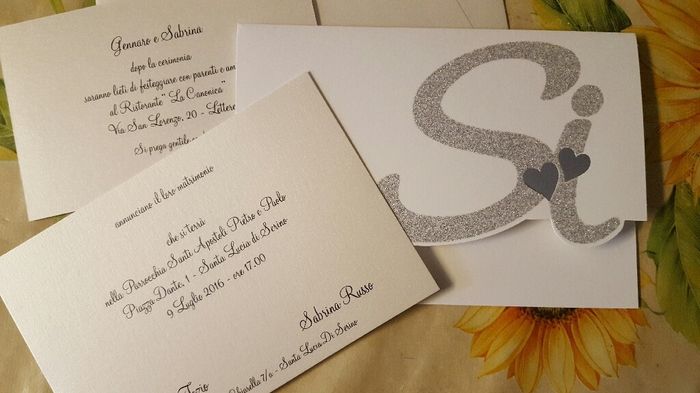 Gennaro e Sabrina
dopo la cerimonia
saranno lieti di festeggiare con parenti e am
al Ristorante "La Canonica"
Via San Lorenzo, 20 - Lettere
Si prega gentile
Si
annunciano il loro matrimonio
che si terrà
nella Parrocchia Santi Apostoli Pietro e Paolo
Piazza Dante, 1 - Santa Lucia di Serino
9 Luglio 2016 - ore 17.00
Sabrina Russo
7/a - Santa Lucia Di Serino